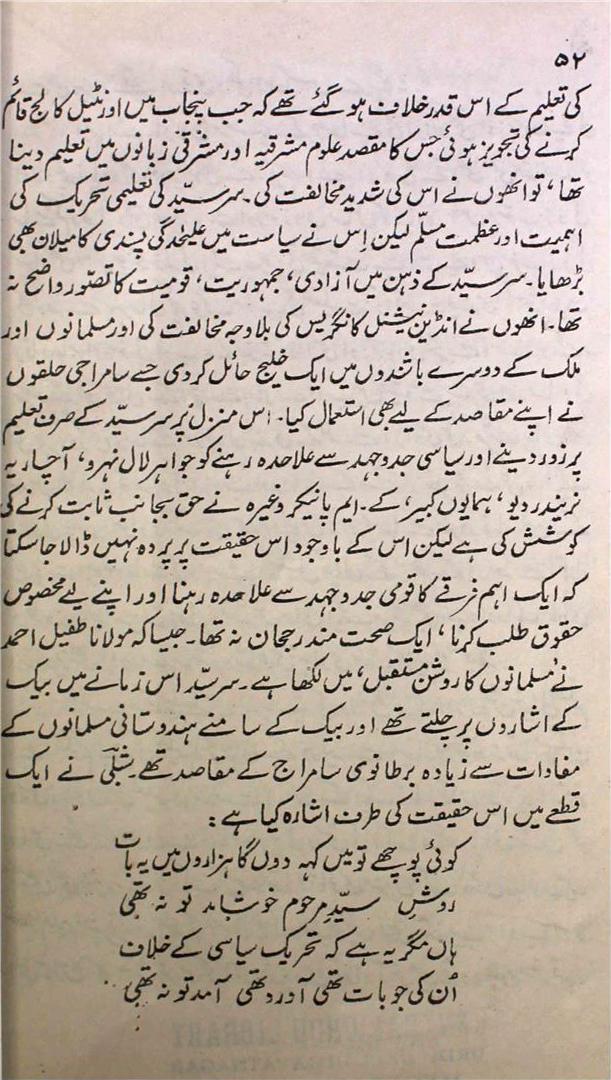 ۵۲
کی تعلیم کے اس قدر خلاف ہو گئے تھے کہ جب پنجاب میں اورنٹیل کالج قائم
کرنے کی تجویز ہوئی جس کا مقصد علوم مشرقیہ اور مشرقی زبانوں میں تعلیم دینا
تھا، تو انھوں نے اس کی شدید مخالفت کی۔ سرسیّد کی تعلیمی تحریک کی
اہمیت اور عظمت مسلّم لیکن اِس نے سیاست میں علیٰحدگی پسندی کا میلان بھی
بڑھایا۔ سرسیّد کے ذہن میں آزادی، جمہوریت، قومیت کا تصوّر واضح نہ
تھا۔ انھوں نے انڈین نیشنل کانگریس کی بلاوجہ مخالفت کی اور مسلمانوں اور
ملک کے دوسرے باشندوں میں ایک خلیج حائل کردی جسے سامراجی حلقوں
نے اپنے مقاصد کے لیے بھی استعمال کیا۔ اس منزل پر سرسیّد کے صرف تعلیم
پر زور دینے اور سیاسی جدوجہد سے علاحدہ رہنے کو جواہر لال نہرو، آچاریہ
نریندر دیو، ہمایوں کبیر، کے۔ ایم پانیکر وغیرہ نے حق بجانب ثابت کرنے کی
کوشش کی ہے لیکن اس کے باوجود اس حقیقت پر پردہ نہیں ڈالا جاسکتا
کہ ایک اہم فرقے کا قومی جدوجہد سے علاحدہ رہنا اور اپنے لیے مخصوص
حقوق طلب کرنا، ایک صحت مند رجحان نہ تھا۔ جیسا کہ مولانا طفیل احمد
نے ’مسلمانوں کا روشن مستقبل‘ میں لکھا ہے۔ سرسیّد اس زمانے میں بیک
کے اشاروں پر چلتے تھے اور بیک کے سامنے ہندوستانی مسلمانوں کے
مفادات سے زیادہ برطانوی سامراج کے مقاصد تھے۔ شبلی نے ایک
قطعے میں اس حقیقت کی طرف اشارہ کیا ہے:
کوئی پوچھے تو میں کہہ دوں گا ہزاروں میں یہ بات
روشِ سیّدِ مرحوم خوشامد تو نہ تھی
ہاں مگر یہ ہے کہ تحریک سیاسی کے خلاف
اُن کی جو بات تھی آورد تھی آمد تو نہ تھی